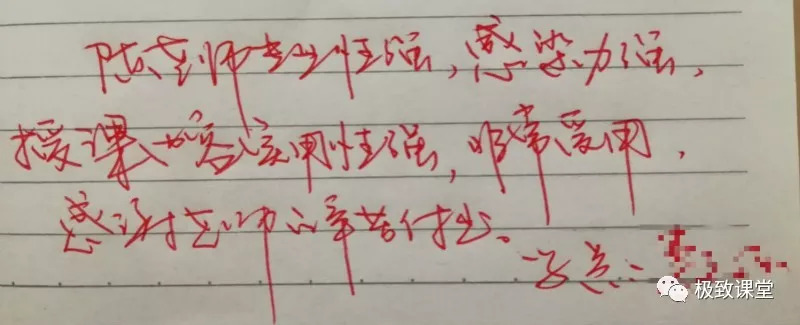 陈老师专业性强,感染力强,
授课内容实用性强,非常受用,
感谢老师的辛苦付出。
学员:
极致课堂